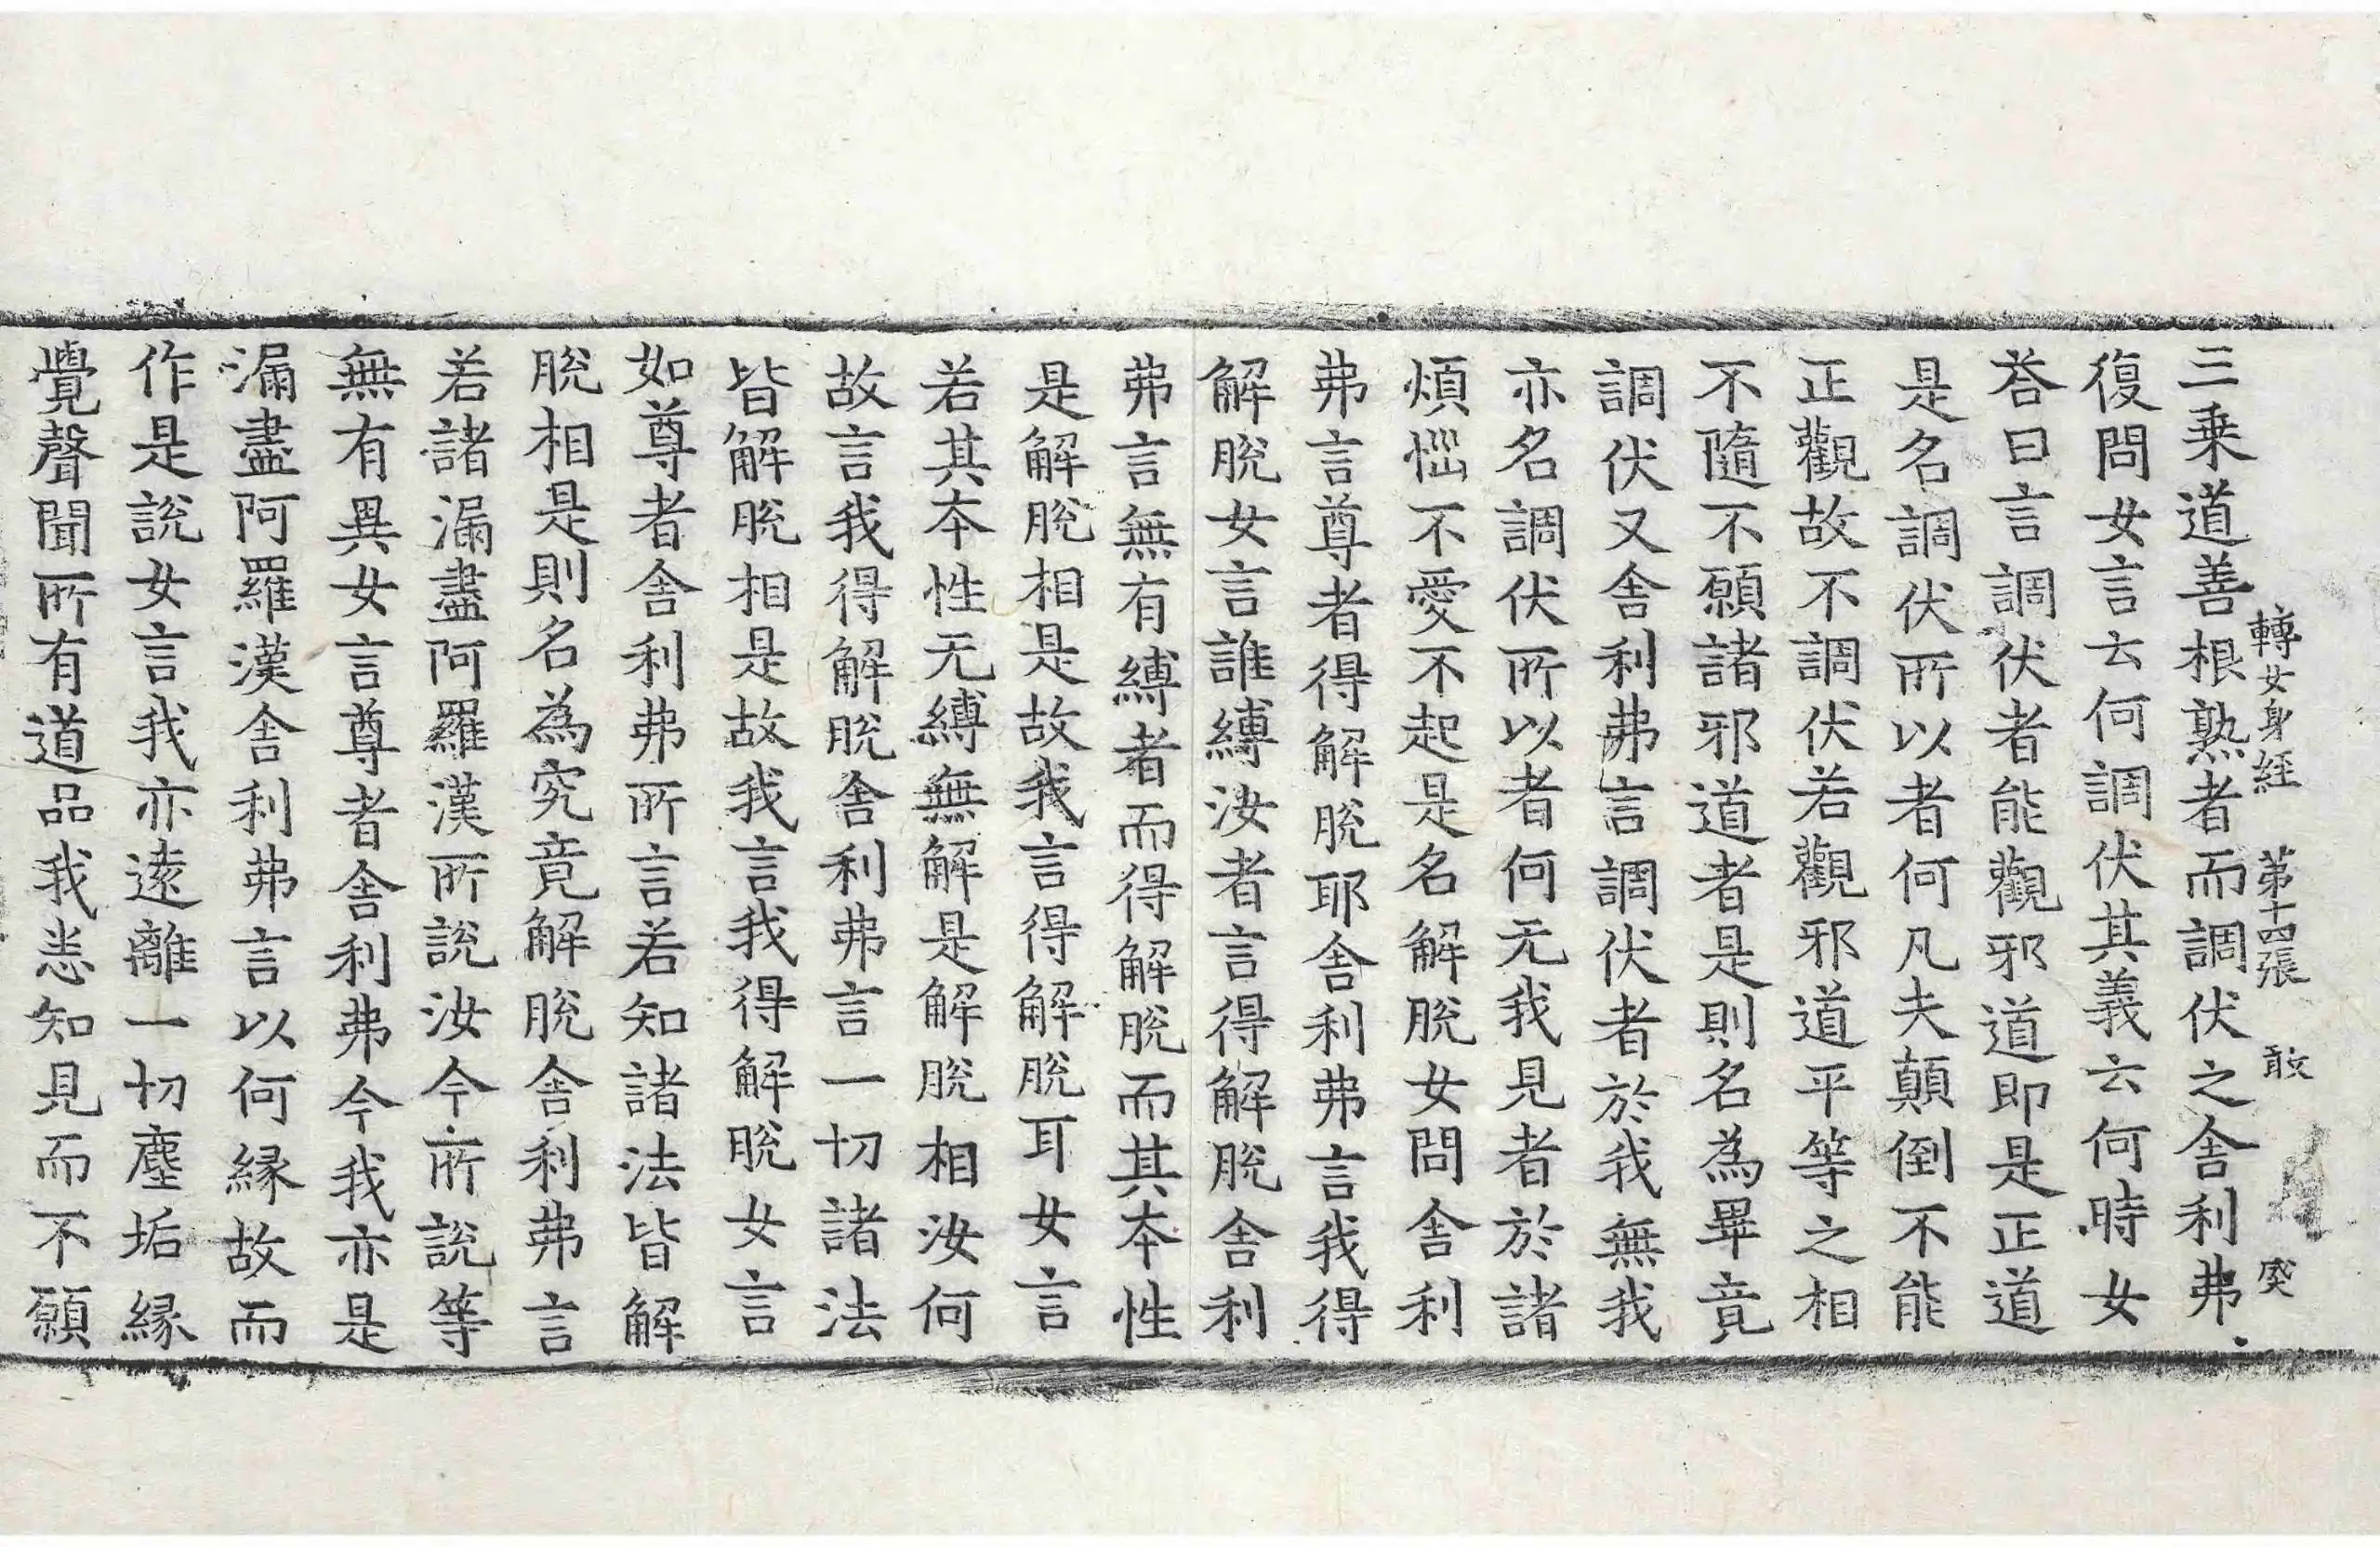 轉女身經 第十四張 敢
三乘道善根熟者而調伏之舍利弗
復問女言云何調伏其義云何時女
荅曰言調伏者能觀邪道即是正道
是名調伏所以者何凡夫顛倒不能
正觀故不調伏若觀邪道平等之相
不隨不願諸邪道者是則名為畢竟
調伏又舍利弗言調伏者於我無我
亦名調伏所以者何无我見者於諸
煩惱不愛不起是名解脫女問舍利
弗言尊者得解脫耶舍利弗言我得
解脫女言誰縛汝者言得解脫舍利
弗言無有縛者而得解脫而其夲性
是解脫相是故我言得解脫耳女言
若其夲性无縛無解是解脫相汝何
故言我得解脫舍利弗言一切諸法
皆解脫相是故我言我得解脫女言
如尊者舍利弗所言若知諸法皆解
脫相是則名為究竟解脫舍利弗言
若諸漏盡阿羅漢所說汝今所說等
無有異女言尊者舍利弗今我亦是
漏盡阿羅漢舍利弗言以何緣故而
作是說女言我亦遠離一切塵垢緣
覺聲聞所有道品我悉知見而不願